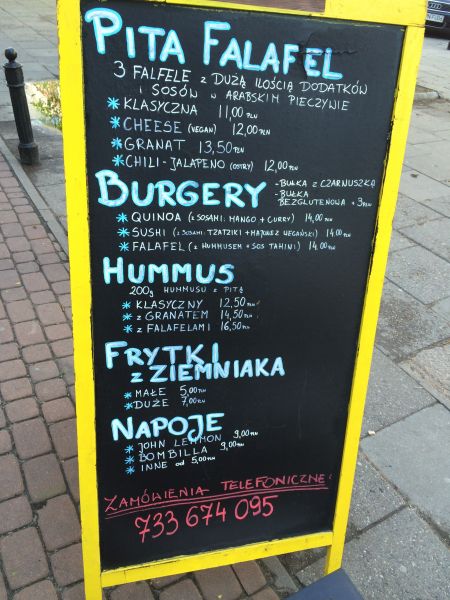 PITA FALAFEL
3 FALFELE z DUŻĄ ILOŚCIĄ DODATKÓW
i SOSÓW w ARABSKIM PIECZYWIE
* KLASYCZNA 11,00 PLN
* CHEESE (VEGAN) 12,00 PLN
* GRANAT 13,50 PLN
* CHILI-JALAPENO (OSTRY) 12,00 PLN
BURGERY - BUŁKA z CZARNUSZKĄ
- BUŁKA
BEZGLUTENOWA + 3 PLN
* QUINOA (z SOSAMI: MANGO + CURRY) 14,00 PLN
* SUSHI (z SOSAMI: TZATZIKI + MAJONEZ WEGAŃSKI) 14.00 PLN
* FALAFEL (z HUMMUSEM + SOS TAHINI) 14.00 PLN
HUMMUS
200g HUMMUSU z PITĄ
* KLASYCZNY 12,50 PLN
* z GRANATEM 14,50 PLN
* z FALAFELAMI 16,50 PLN
FRYTKI
z ZIEMNIAKA
* MAŁE 5,00 PLN
* DUŻE 7,00 PLN
NAPOJE
* JOHN LEMMON 9,00 PLN
* BOMBILLA 9,00 PLN
* INNE od 5,00 PLN
ZAMÓWIENIA TELEFONICZNE:
733 674 095